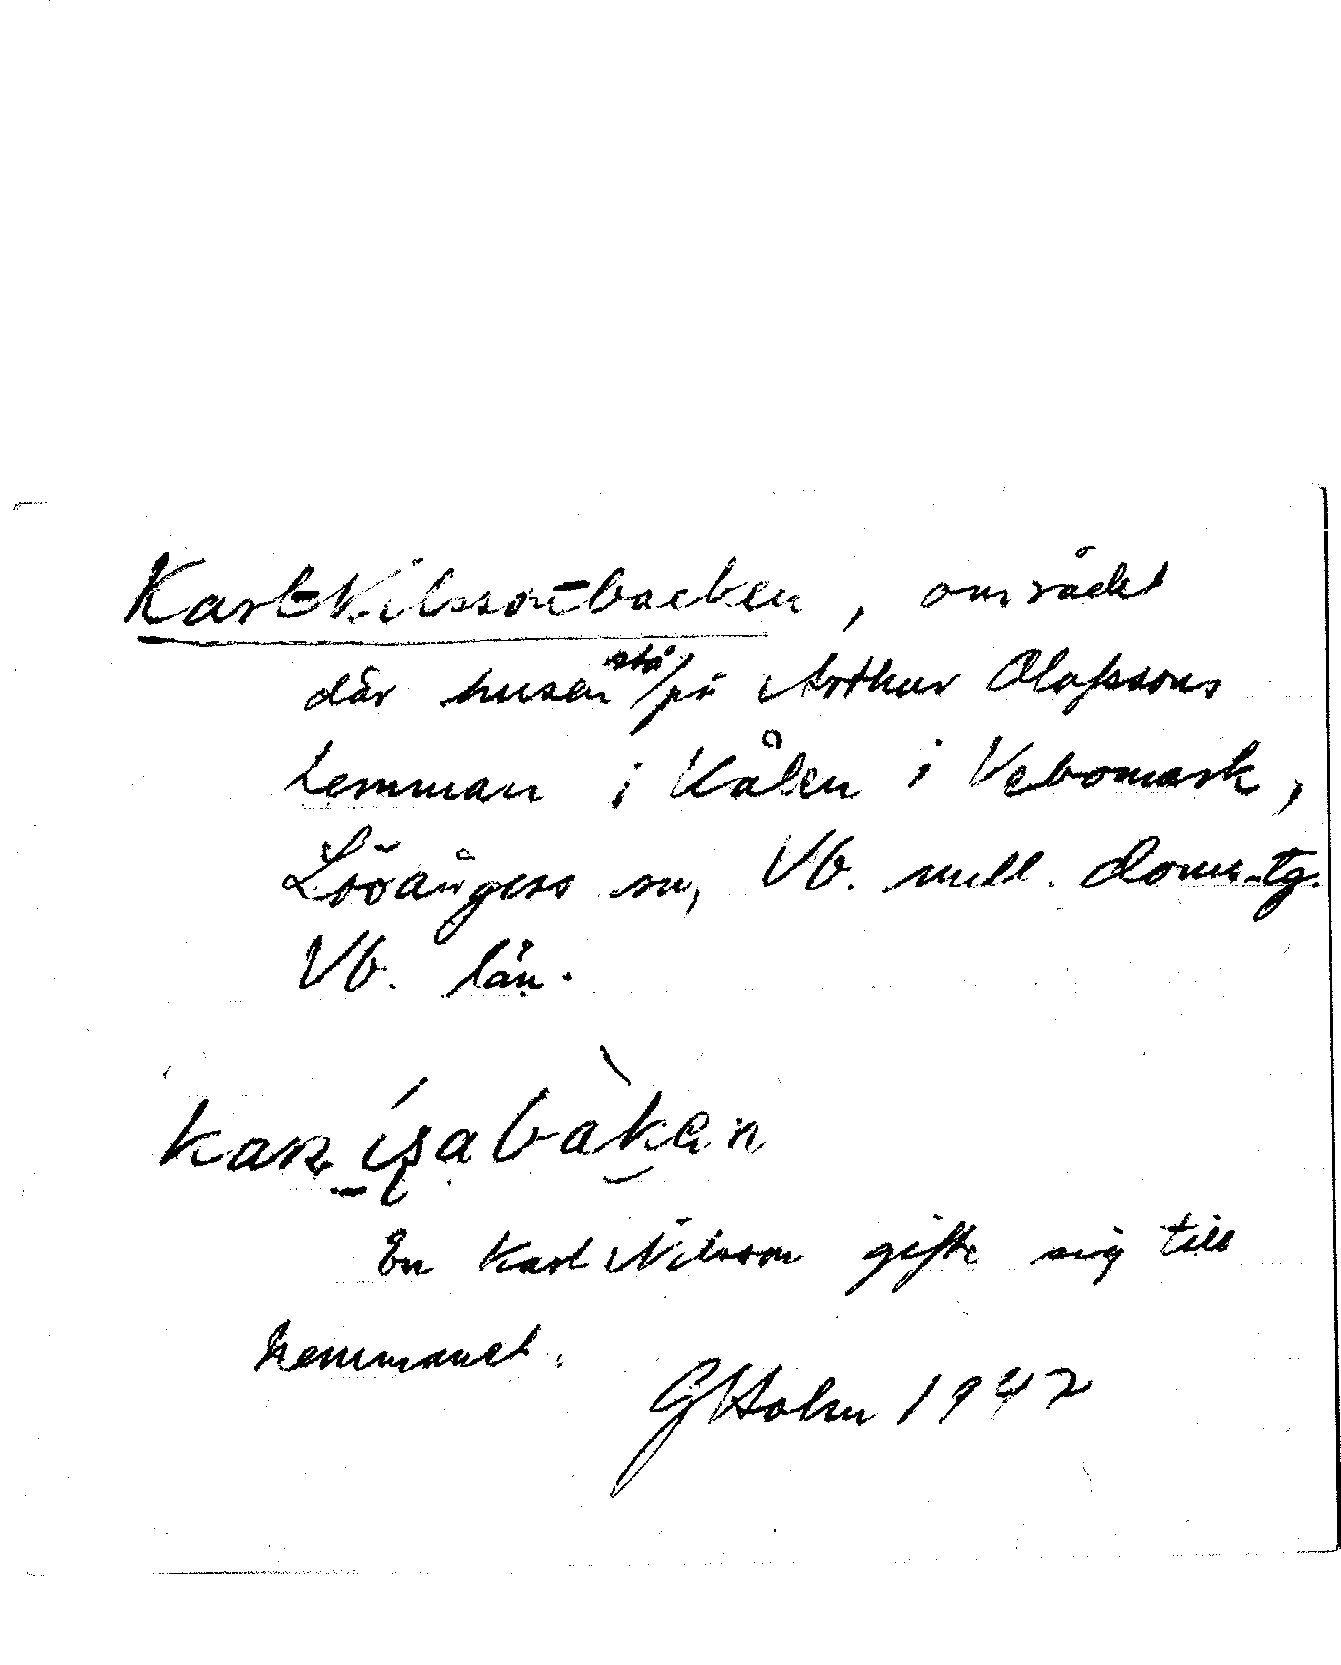 Karl-Nilsson-backen, området
där husen stå på Arthur Olofssons
hemman i Kålen i Vebomark,
Lövångers sn, Vb. mell. doms.tg.
Vb. län.
En Karl Nilsson gifte sig till
hemmanet.
GHolm 1942